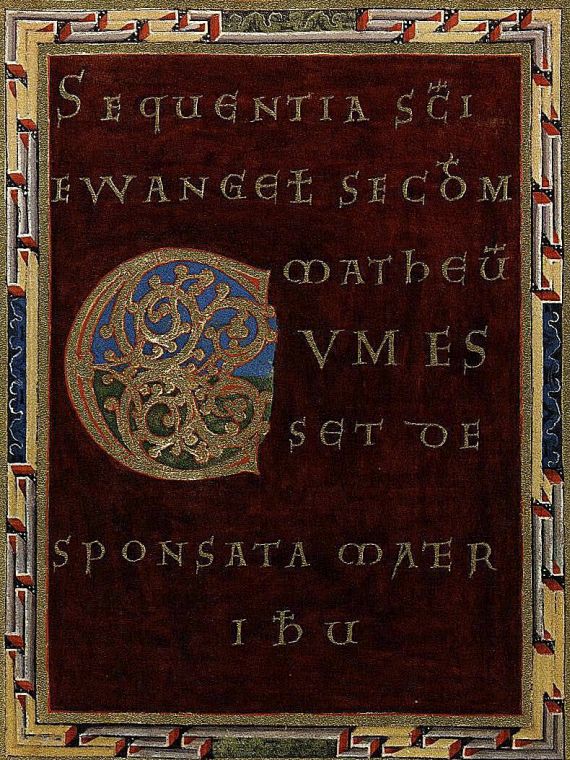 SEQUENTIA SC̄I
EWANGEŁ SECŌM
MATHEŪ
CVM ES
SET DE
SPONSATA MATER
IħU